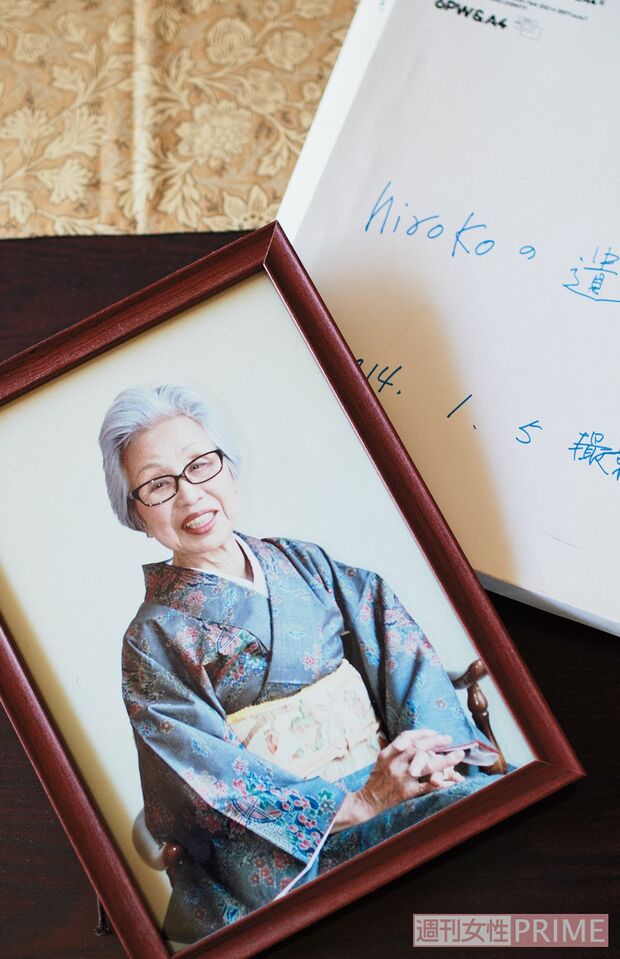 OPW&A4
hirokoの遺
14. 1. 5 撮影
週刊女性PRIME